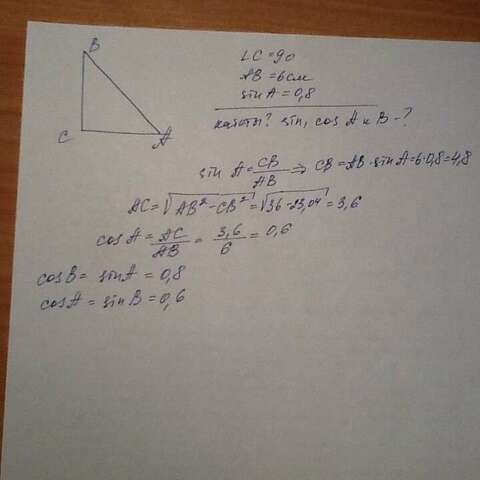 B
C
A
∠C=90
AB=6см
sin A=0,8
катеты? sin, cos A и B-?
sin A=CB/AB ⇒ CB=AB·sin A=6·0,8=4,8
AC=√AB²-CB²=√36-23,04=3,6
cos A=AC/AB=3,6/6=0,6
cos B= sin A=0,8
cos A= sin B=0,6